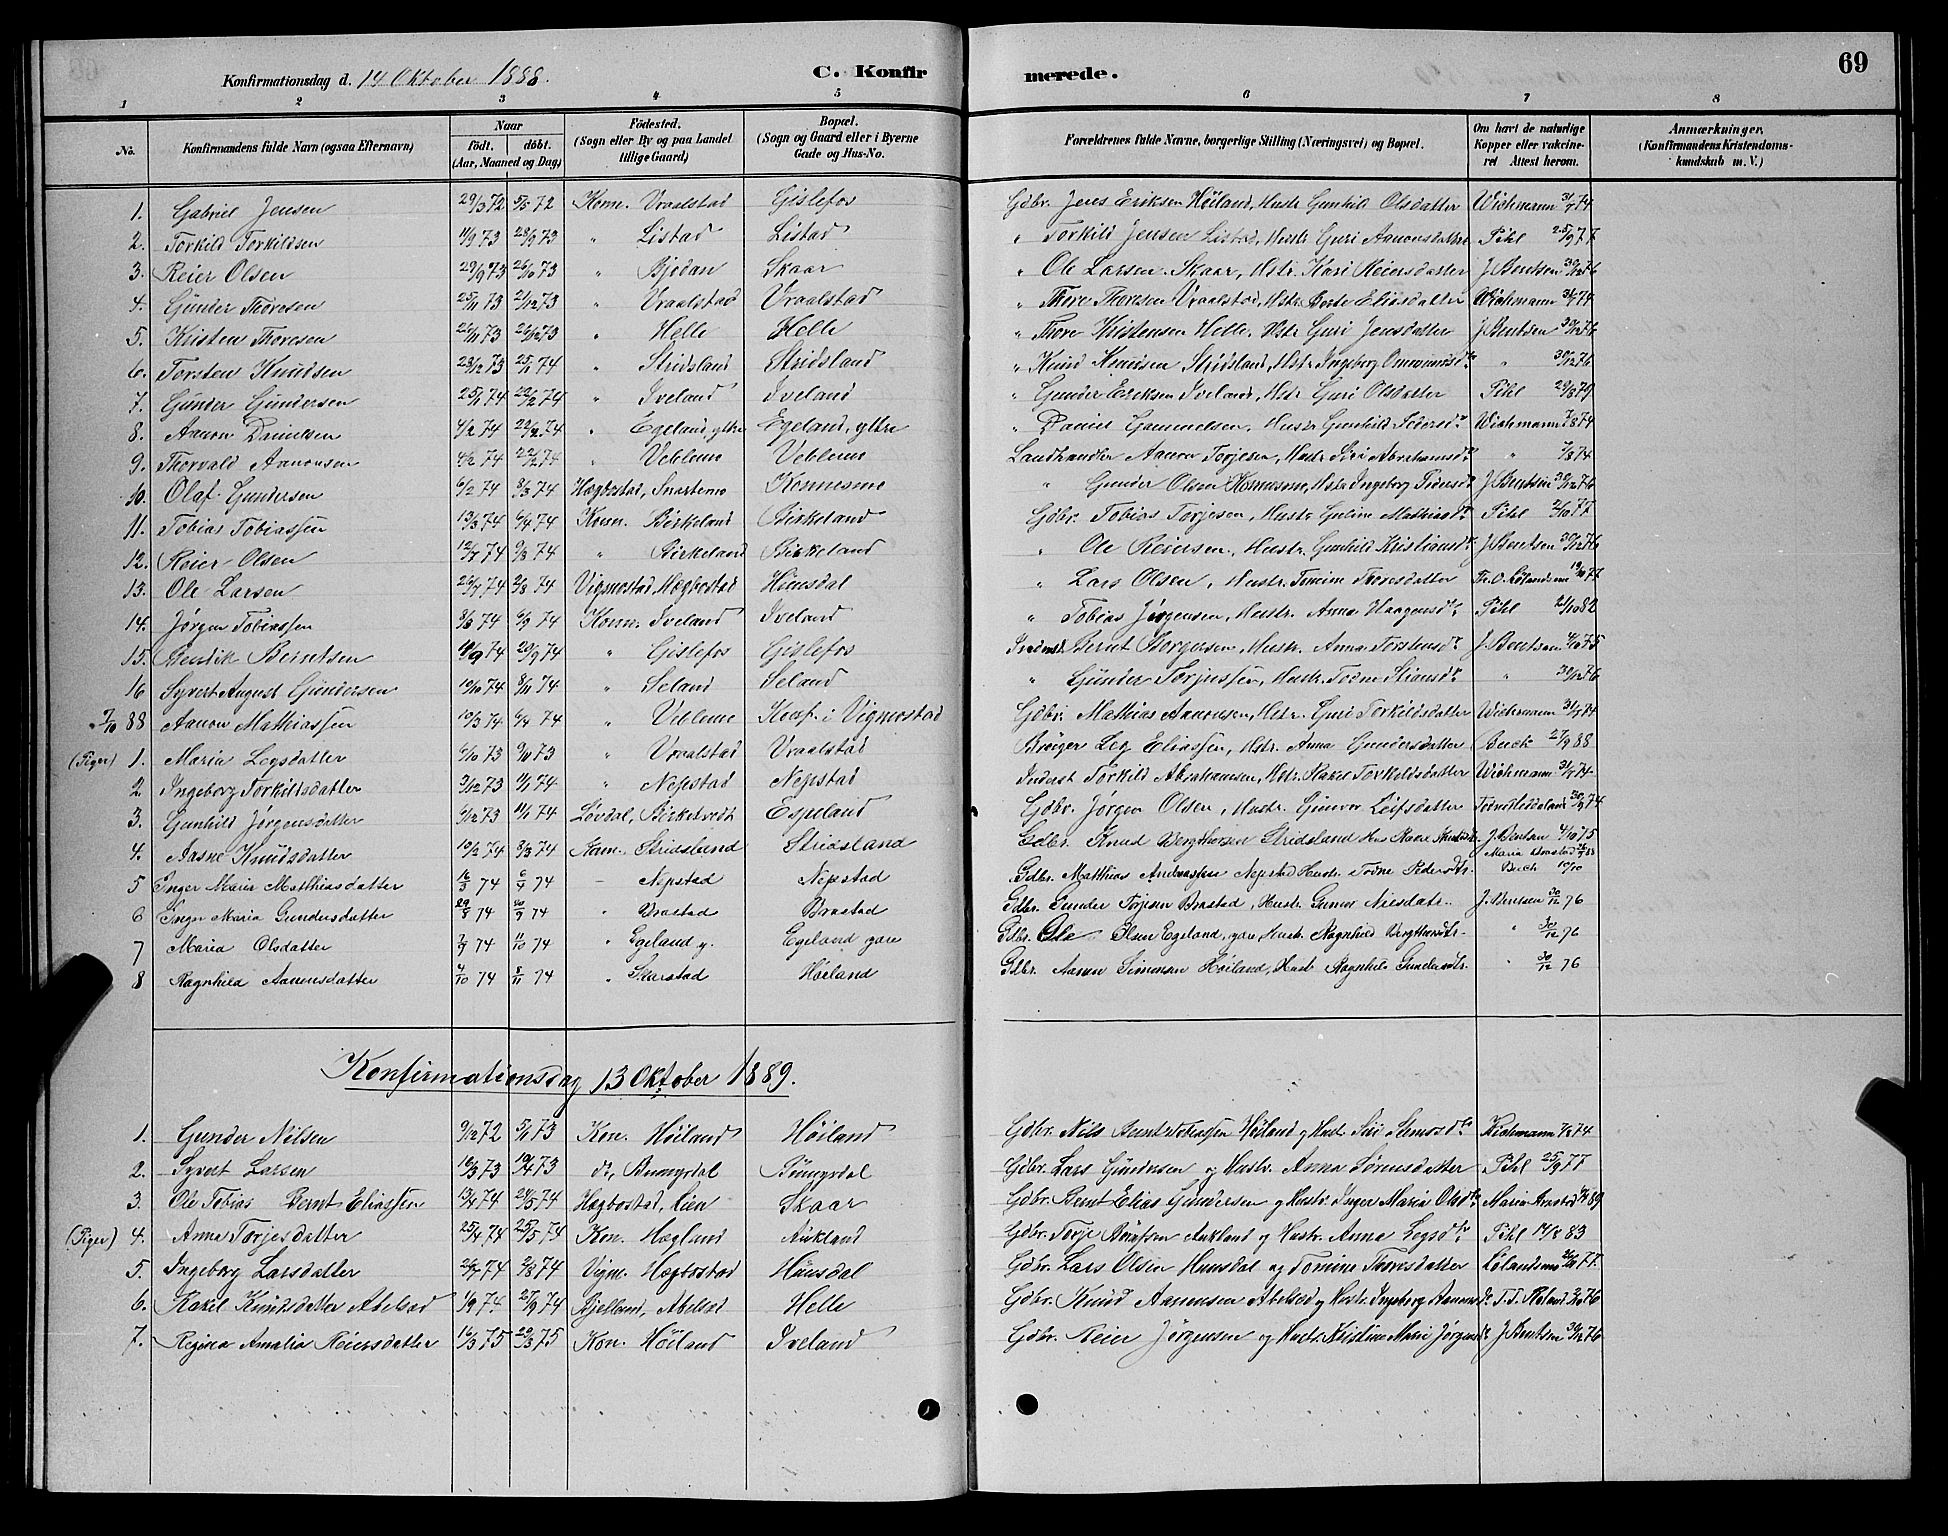 Konfirmationsdag d. 14 Oktober 1888. C. Konfirmerede. 69
1 2 3 4 5 6 7 8
No. Konfirmandens fulde Navn (ogsaa Efternavn) Naar født. døbt. (Aar, Maaned og Dag) Fødested. (Sogn eller By og paa Landet tillige Gaard) Bopæl. (Sogn og Gaard eller i Byerne Gade og Hus-No. Forældrenes fulde Navne, borgerlige Stilling (Næringsvei) og Bopæl. Om havt de naturlige Kopper eller vakcineret Attest herom. Anmærkninger. (Konfirmandens Kristendomskundskab m. V.)
1. Gabriel Jensen 29/3 72 5/5 72 Konn. Vraalstad Gislefos Gdbr. Jens Eriksen Höiland, Hustr Gunhild Olsdatter Wichmann 31/7 74
2. Torkild Torkildsen 11/9 73 28/9 73 " Listad Listad " Torkild Jensen Listad, Hstr. Guri Aanonsdatter Pihl 25/9 77
3. Reier Olsen 29/9 73 26/10 73 " Bjodan Skaar " Ole Larsen Skaar, Hstr. Kari Reiersdatter J. Bentsen 30/12 76
4. Gunder Thoresen 25/11 73 21/12 73 " Vraalstad Vraalstad " Thore Thoresen Vraalstad, Hstr. Berte Eliasdatter Wichmann 31/7 74
5. Kristen Thoresen 26/11 73 26/12 73 " Helle Helle " Thore Kristensen Helle, Hstr. Guri Jensdatter J. Bentsen 30/12 76
6. Torsten Knudsen 23/12 73 25/1 74 " Stridsland Stridsland " Knud Knudsen Stridsland, Hstr. Ingeborg " 30/12 76
7. Gunder Gundersen 25/1 74 22/2 74 " Iveland Iveland " Gunder Eriksen Iveland, Hstr. Guri Olsdatter Pihl 29/8 79
8. Aanon Danielsen 4/2 74 22/2 74 " Egeland, ytre Egeland, ytre " Daniel Gammelsen, Hustr. Gunhild Pedersd. Wichmann 7/8 74
9. Thorvald Aanonsen 4/2 74 22/2 74 " Veblem Veblem Landhandler Aanon Torjesen, Hustr. Siri Abrahamsd. " 7/8 74
10. Olaf Gundersen 6/2 74 8/3 74 Hægbostad, Snartemo Konnesmo " Gunder Olsen Konnesmo, Hstr. Ingeborg J. Bentsen 30/12 76
11. Tobias Tobiassen 13/3 74 6/4 74 Konn. Birkeland Birkeland Gdbr. Tobias Torjesen, Hustr. Guline Mathiasd. Pihl 2/10 77
12. Reier Olsen 12/7 74 9/8 74 " Birkeland Birkeland " Ole Reiersen, Hustr. Gunhild Kristiansd. J. Bentsen 30/12 76
13. Ole Larsen 26/7 74 2/8 74 Vigmostad, Hægbostad Hunsdal " Lars Olsen, Hustr. Tomine Thoresdatter 77
14. Jørgen Tobiassen 8/8 74 6/9 74 Konn. Iveland Iveland " Tobias Jørgensen, Hustr. Anna Haagensd. Pihl 21/10 82
15. Hendik Berntsen 11/9 74 20/9 74 " Gislefos Gislefos Bernt Børgersen, Hustr. Anna Torstensd. J. Bentsen 4/10 75
16 Syvert August Gundersen 10/10 74 8/11 74 " Seland Seland " Gunder Torjussen, Hustr. Todne Stiansd. " 30/12 76
7/10 88 Aanon Mathiassen 10/3 74 6/4 74 " Veblem Konf. i Vigmostad Gdbr. Mathias Aanonsen, Hstr. Guri Torkildsdatter Wichmann 31/7 74
(Piger) 1. Maria Legsdatter 6/10 73 9/11 73 " Vraalstad Vraalstad Bruger Leg Eliassen, Hstr. Anna Gundersdatter Buch 27/9 88
2. Ingeborg Torkildsdatter 3/12 73 11/1 74 " Nepstad Nepstad Inderst Torkild Abrahamsen, Hstr. Rakel Torkildsdatter Wichmann 31/7 74
3. Gunhild Jørgensdatter 6/12 73 11/1 74 Løvdal, Birketvedt Espeland Gdbr. Jørgen Olsen, Hustr. Gunvor Leifsdatter 74
4. Aasne Knudsdatter 10/2 74 8/3 74 Konn. Stridsland Stridsland Gdbr. Knud Bergthorsen Stridsland J. Bentsen 4/10 75
5 Inger Maria Matthiasdatter 16/3 74 6/4 74 " Nepstad Nepstad Gdbr. Matthias Andreassen Nepstad Hustr. Todne Pedersdtr. Buch 10/10
6 Inger Maria Gundersdatter 29/8 74 20/9 74 " Braastad Braastad Gdbr. Gunder Torjesen Braastad, Hustr. Gunvor Nilsdatr. J. Bentsen 30/12 76
7 Maria Olsdatter 7/9 74 11/10 74 " Egeland y. Egeland øvre Gdbr. Ole Olsen Egeland, øvre, Hustr. Ragnhild " 30/12 76
8 Ragnhild Aanonsdatter 4/10 74 8/11 74 " Skarstad Høiland Gdbr. Aanon Simonsen Høiland, Hust Ragnhild Gundersdtr. " 30/12 76
Konfirmationsdag 13 Oktober 1889.
1. Gunder Nilsen 9/12 72 5/1 73 Kon. Höiland Höiland Gdbr. Nils Berntsen Höiland og Hustr. Siri Wichmann 7/8 74
2. Syvert Larsen 16/3 73 10/4 73 do, Bumyrdal Bumyrdal Gdbr. Lars Gundersen og Hustr. Anna Sørensdatter Pihl 25/9 77
3. Ole Tobias Bernt Eliassen 13/4 74 24/5 74 Hægbostad, Lien Skaar Gdbr. Bernt Elias Gundersen og Hustr. Inger Maria Olsd. Maria Braastad 89
(Piger) 4. Anna Torjesdatter 25/4 74 25/5 74 Kon. Hægland Aukland Gdbr. Torje Aukland og Hustr. Anna Legsd. Pihl 14/8 83
5. Ingeborg Larsdatter 26/7 74 2/8 74 Vigm. Hægbostad Hunsdal Gdbr. Lars Olsen Hunsdal og Tomine Thoresdatter 77
6. Rakel Knudsdatter Abelsæd 1/9 74 27/9 74 Bjelland, Abelsed Helle Gdbr. Knud Aanonsen Abelsed og Hustr. Ingeborg Aanonsd. T. T. Røland 76
7. Regina Amalia Reiersdatter 16/3 75 29/3 75 Kon. Höiland Iveland Gdbr. Reier Jørgensen og Hustr. Kristine Marie Jørgensd. J. Bentsen 30/12 76